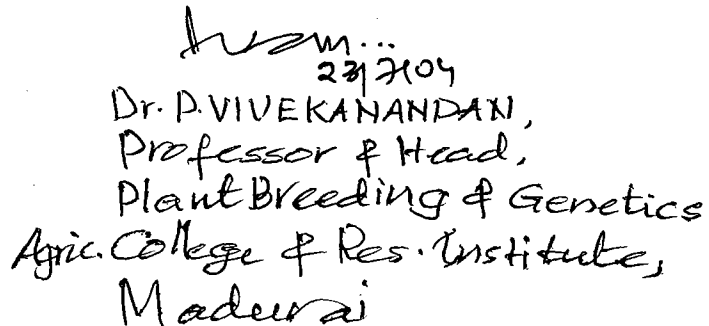 23/7/04
Dr. P. VIVEKANANDAN,
Professor & Head,
Plant Breeding & Genetics
Agric. College & Res. Institute,
Madurai